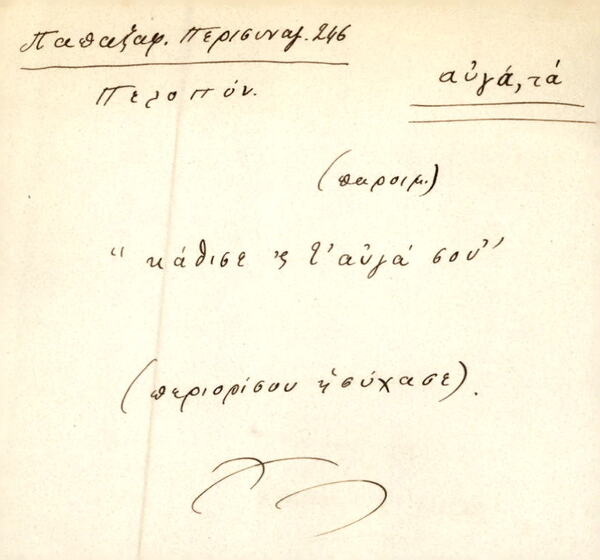 Παπαζαφ. Περισυναγ. 246
Πελοπόν.
αὐγά, τά
(παροιμ.)
"κάθισε 'ς τ' αὐγά σου"
(περιορίσου ἡσύχασε).